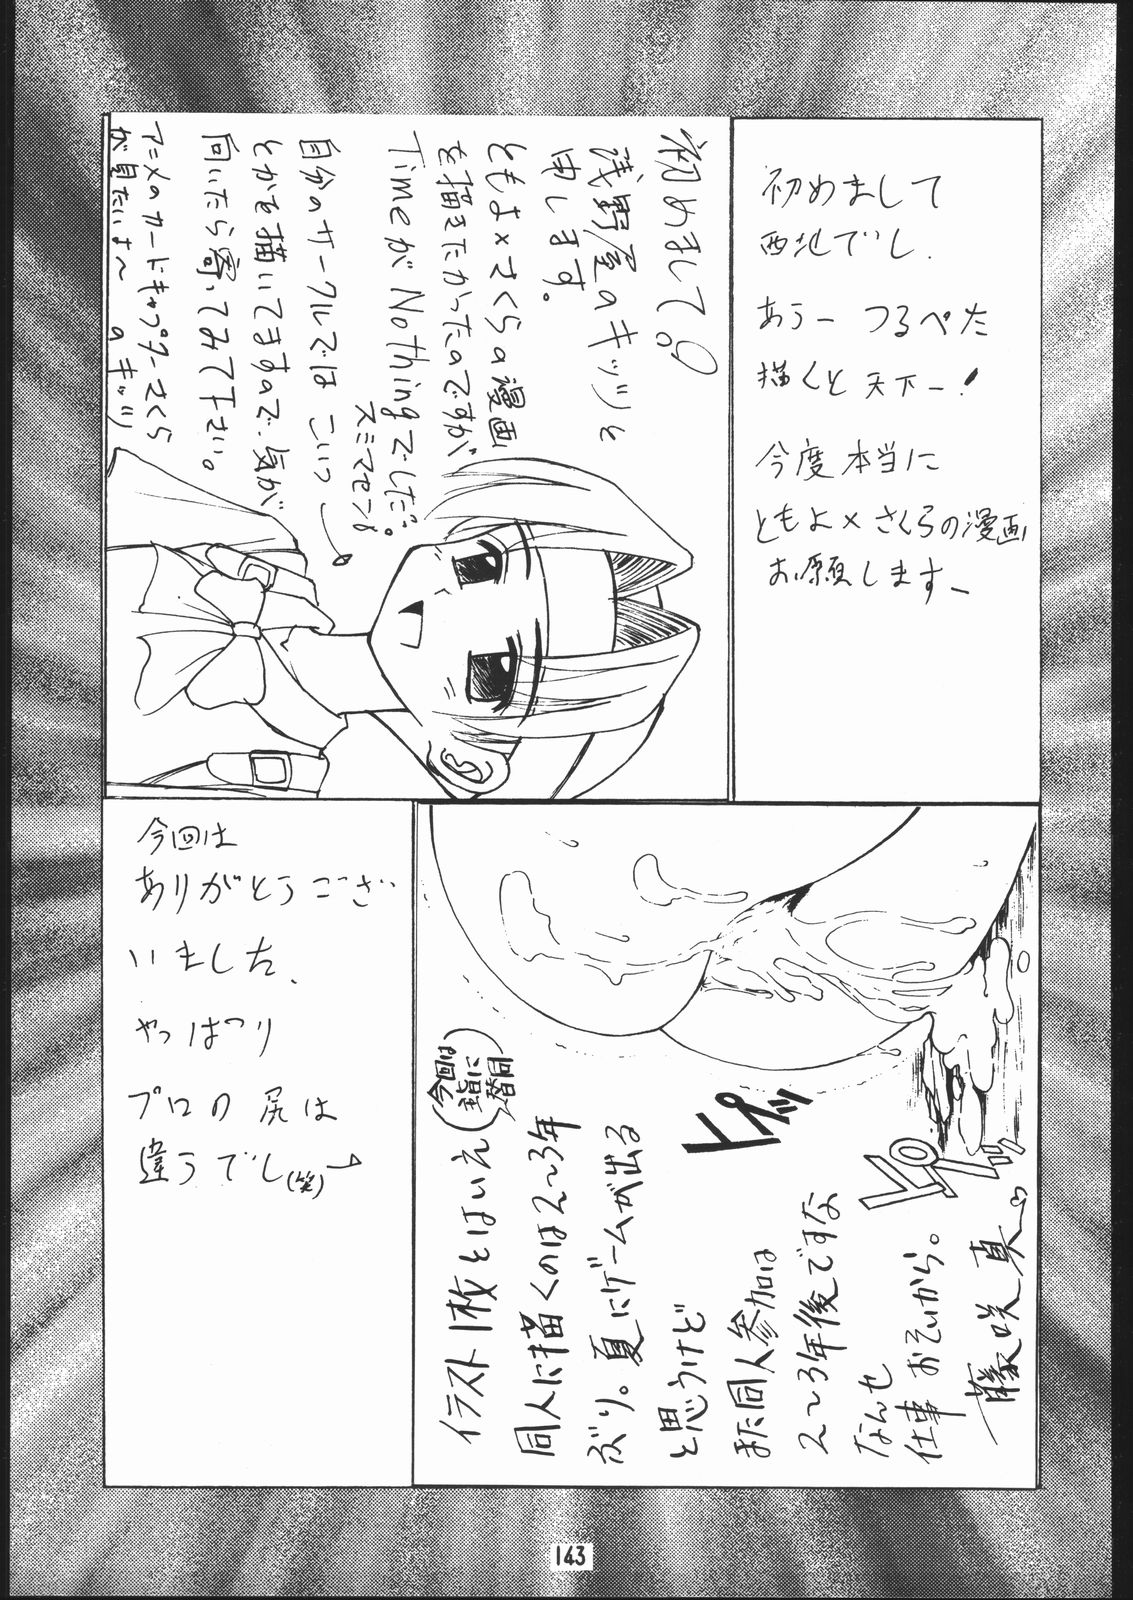 初めまして
西地でし.
あうー つるぺた
描くと天下一!
今度本当に
ともよ×さくらの漫画
お願いします-
初めまして。
浅野屋のキッツと
申します。
ともよ×さくらの漫画
を描きたかったのですが
TimeがNothingでした。
スミマセン
自分のサークルでは こいつ
とかを描いてますので、気が
向いたら寄ってみて下さい。
アニメのカードキャプターさくら
が見たいよ〜 のキッツ
今回は
ありがとうござ
いました.
やっぱり
プロの尻は
違うでし(笑)
ピュッ
ピュッ
イラスト1枚とはいえ
(今回は
主旨に
賛同)
同人に描くのは2〜3年
ぶり。夏にゲームが出る
と思うけど
また同人参加は
2〜3年後ですな
なんせ
仕事おそいから。
藤咲真
143